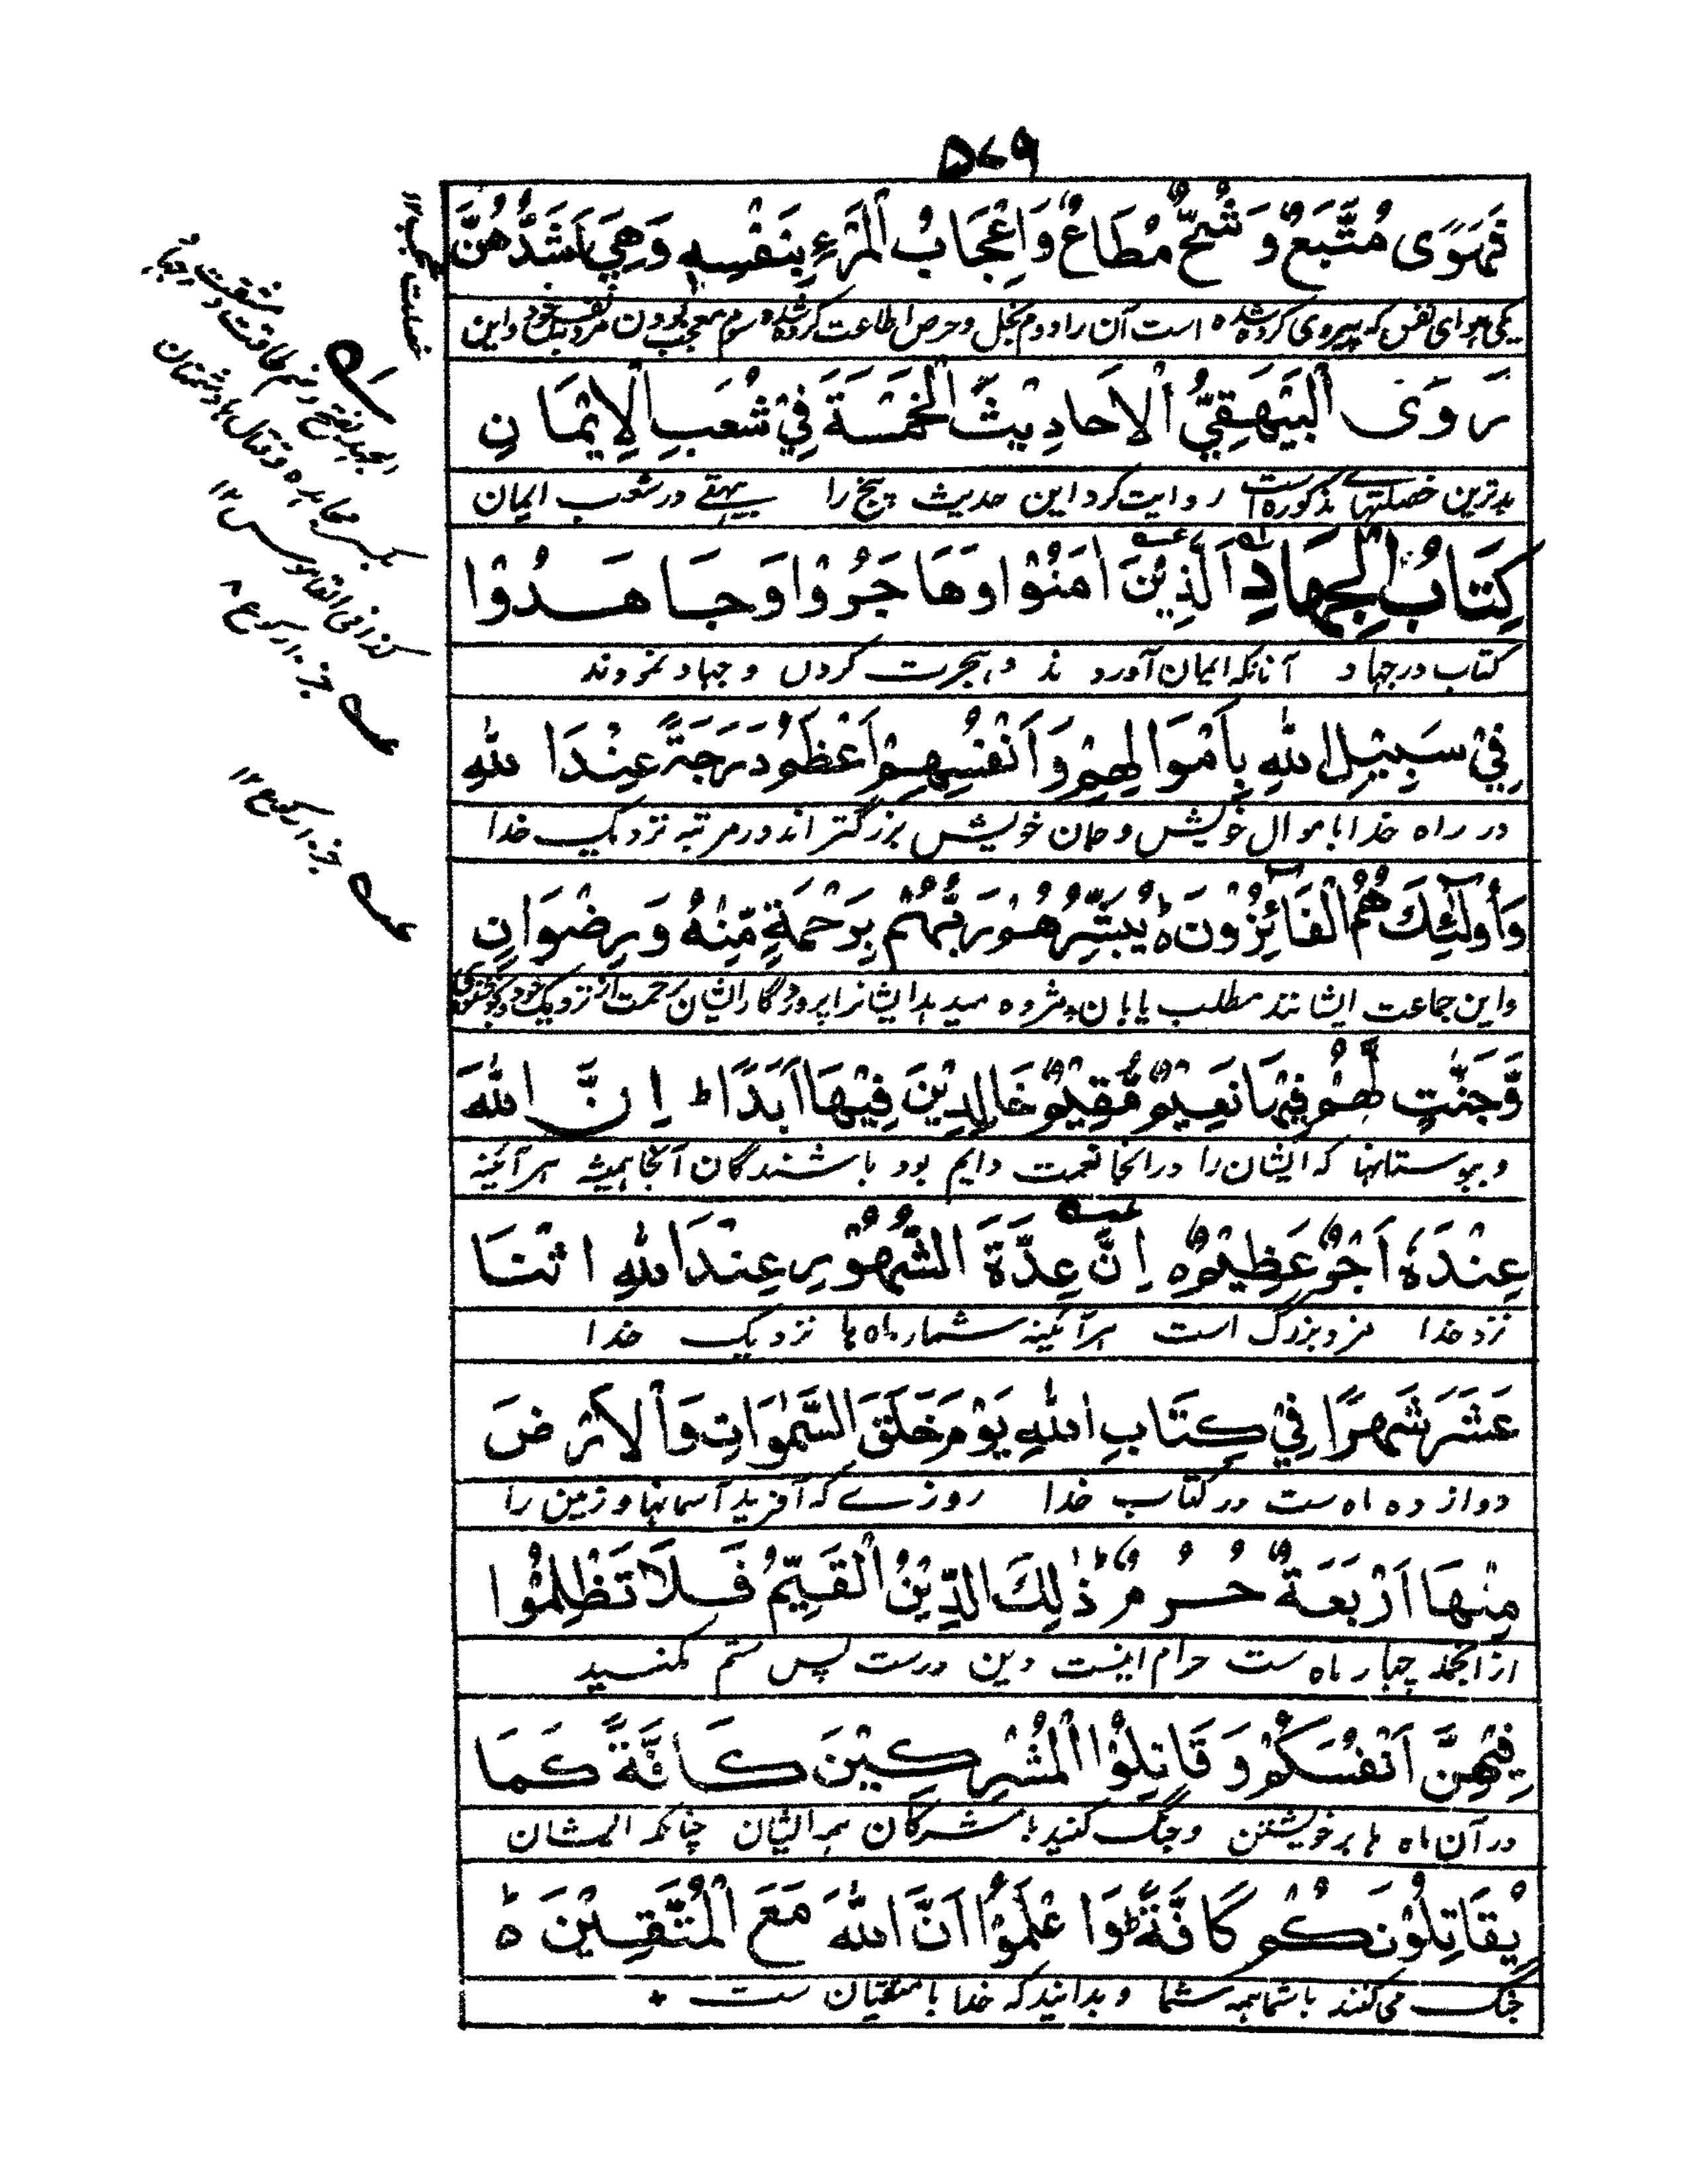 ۵۷۹
فَهَوًى مُتَّبَعٌ وَشُحٌّ مُطَاعٌ وَاِعْجَابُ الْمَرْءِ بِنَفْسِهٖ وَهِيَ اَشَدُّهُنَّ
یکی هوای نفس که پیروی کرده شده است آن را دوم بخل و حرص اطاعت کرده شده سوم معجب بودن مرد بنفس خود و این
رَوَى الْبَيْهَقِيُّ الْاَحَادِيْثَ الْخَمْسَةَ فِيْ شُعَبِ الْاِيْمَانِ
بدترین خصلتهای مذکوره است روایت کرد این حدیث پنج را بیهقے در شعب ایمان
كِتَابُ الْجِهَادِ اَلَّذِيْنَ اٰمَنُوْا وَهَاجَرُوْا وَجَاهَدُوْا
کتاب در جهاد آنانکه ایمان آوردند و هجرت کردن و جهاد نمودند
فِيْ سَبِيْلِ اللهِ بِاَمْوَالِهِمْ وَاَنْفُسِهِمْ اَعْظَمُ دَرَجَةً عِنْدَ اللهِ
در راه خدا باموال خویش و جان خویش بزرگتر اند در مرتبه نزدیک خدا
وَاُولٰٓئِكَ هُمُ الْفَآئِزُوْنَ ہ يُبَشِّرُهُمْ رَبُّهُمْ بِرَحْمَةٍ مِّنْهُ وَرِضْوَانٍ
و این جماعت ایشانند مطلب یابان مژده میدهد ایشانرا پروردگار ایشان برحمت از نزدیک خود و خوشنودی
وَّجَنّٰتٍ لَّهُمْ فِيْهَا نَعِيْمٌ مُّقِيْمٌ خَالِدِيْنَ فِيْهَا اَبَدًا ط اِنَّ اللهَ
و بوستانها که ایشان را در انجا نعمت دایم بود باشندگان آنجا همیشه هر آئینه
عِنْدَهٗ اَجْرٌ عَظِيْمٌ ہ اِنَّ عِدَّةَ الشُّهُوْرِ عِنْدَ اللهِ اثْنَا
نزد خدا مزد بزرگ است هر آئینه شمار ماه ها نزدیک خدا
عَشَرَ شَهْرًا فِيْ كِتَابِ اللهِ يَوْمَ خَلَقَ السَّمٰوَاتِ وَالْاَرْضَ
دوازده ماه ست در کتاب خدا روزے که آفرید آسمانها و زمین را
مِنْهَا اَرْبَعَةٌ حُرُمٌ ط ذٰلِكَ الدِّيْنُ الْقَيِّمُ فَلَا تَظْلِمُوْا
از انجمله چهار ماه ست حرام اینست دین درست پس ستم مکنسید
فِيْهِنَّ اَنْفُسَكُمْ وَقَاتِلُوْا الْمُشْرِكِيْنَ كَافَّةً كَمَا
در آن ماه ها بر خویشتن و جنگ کنید با مشرکان همه ایشان چنانکه ایشان
يُقَاتِلُوْنَكُمْ كَافَّةً ط وَاعْلَمُوْا اَنَّ اللهَ مَعَ الْمُتَّقِيْنَ ہ
جنگ می کنند با شما همه شما و بدانید که خدا با متقیان ست
خصلت عجب ۱۲
الجهد بفتح و ضم طاقت و مشقت و الجهاد
بکسر مجاهده و قتال با دشمنان
کذا فی القاموس ۱۲
جزء ۱۰ رکوع ۸
جزء ۱۰ رکوع ۱۲